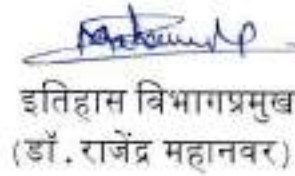 इतिहास विभागप्रमुख
(डॉ. राजेंद्र महानवर)